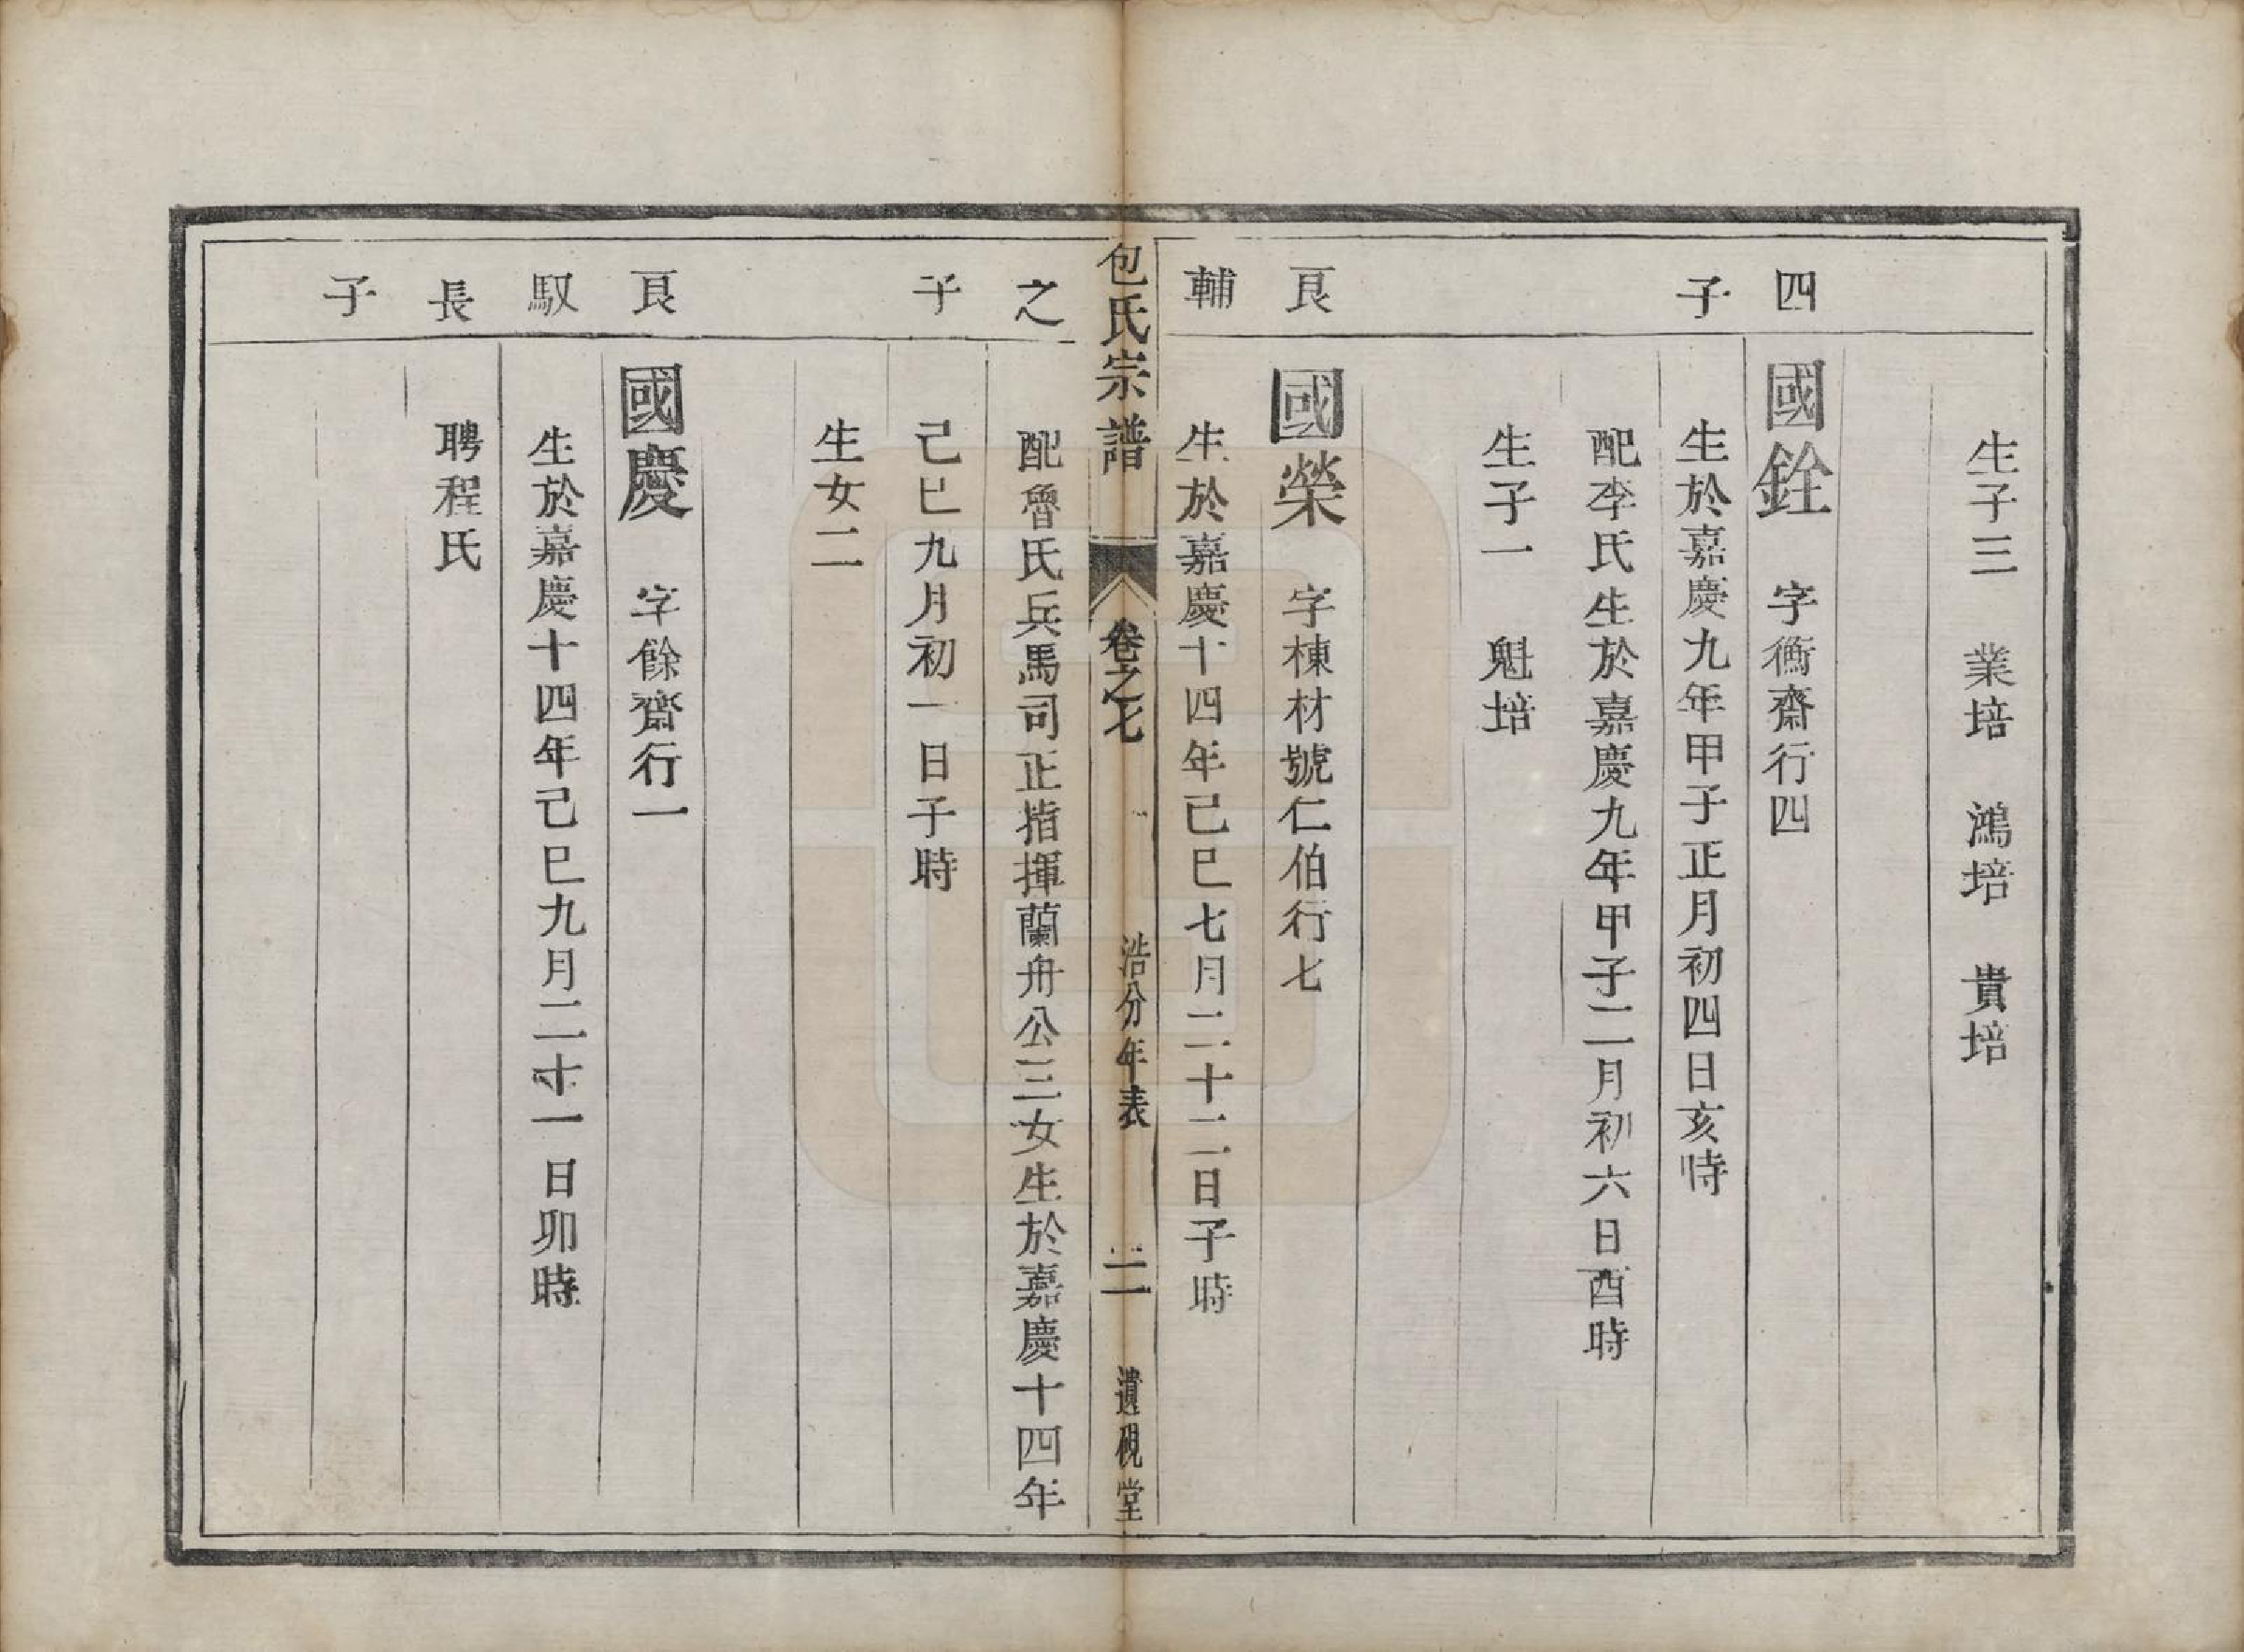 生子三　業培　鴻培　貴培
四
國銓　字衡齋行四
子
生於嘉慶九年甲子正月初四日亥時
配李氏生於嘉慶九年甲子二月初六日酉時
生子一　魁培
良
國榮　字棟材號仁伯行七
輔
生於嘉慶十四年己巳七月二十二日子時
包氏宗譜　卷之七　浩分年表　二　遺硯堂
之
配魯氏兵馬司正指揮蘭舟公三女生於嘉慶十四年
子
己巳九月初一日子時
生女二
良
國慶　字餘齋行一
馭
生於嘉慶十四年己巳九月二十一日卯時
長
聘程氏
子